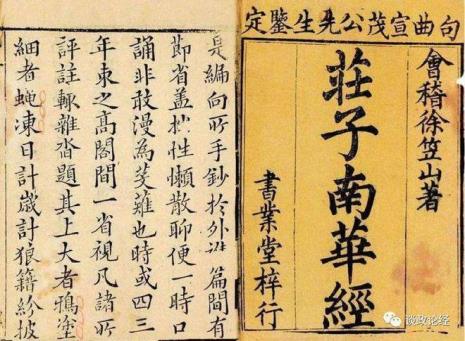 句曲宣茂公先生鑒定
會稽徐笠山著
莊子南華經
書業堂梓行
是編向所手鈔於外篇間有
節省盖抄性懶散聊便一時口
誦非敢漫為芟薙也時或四三
年束之高閣間一省視凡諸所
評註輒雜沓題其上大者鴉塗
細者蝇凍日計歲計狼籍紛披
谈政论经